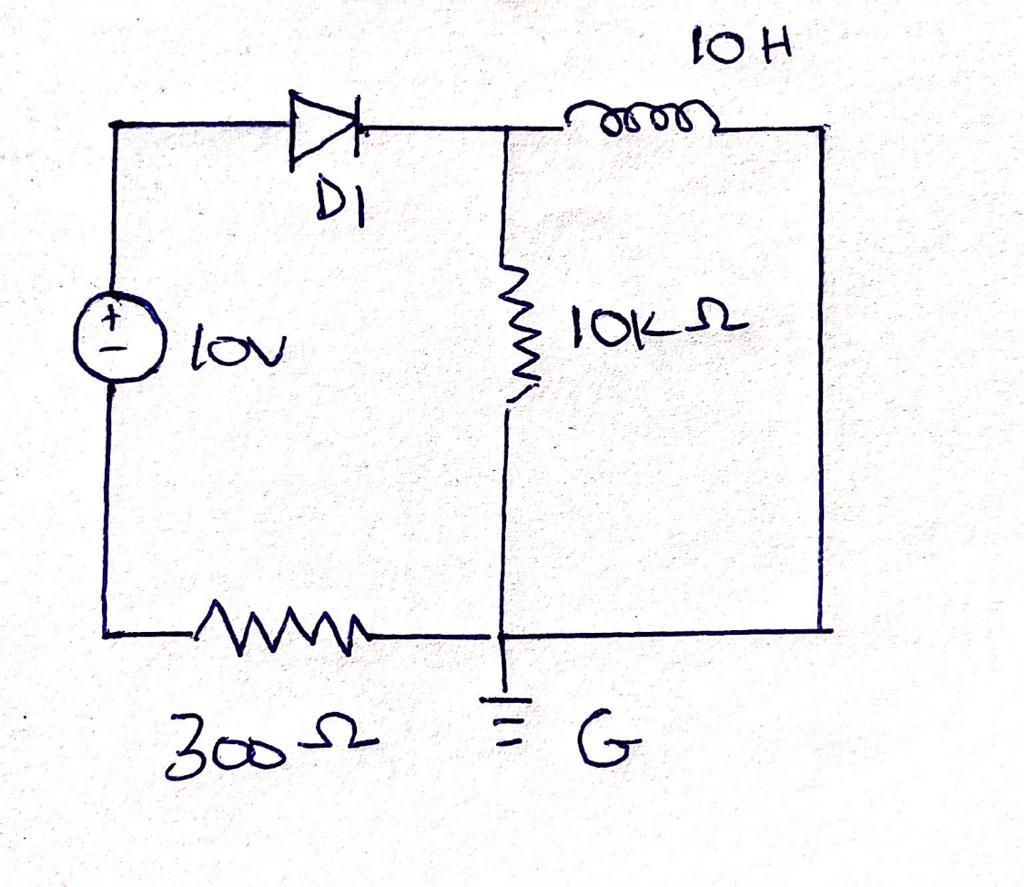 10 H
D1
+
-
10V
10KΩ
300Ω
G